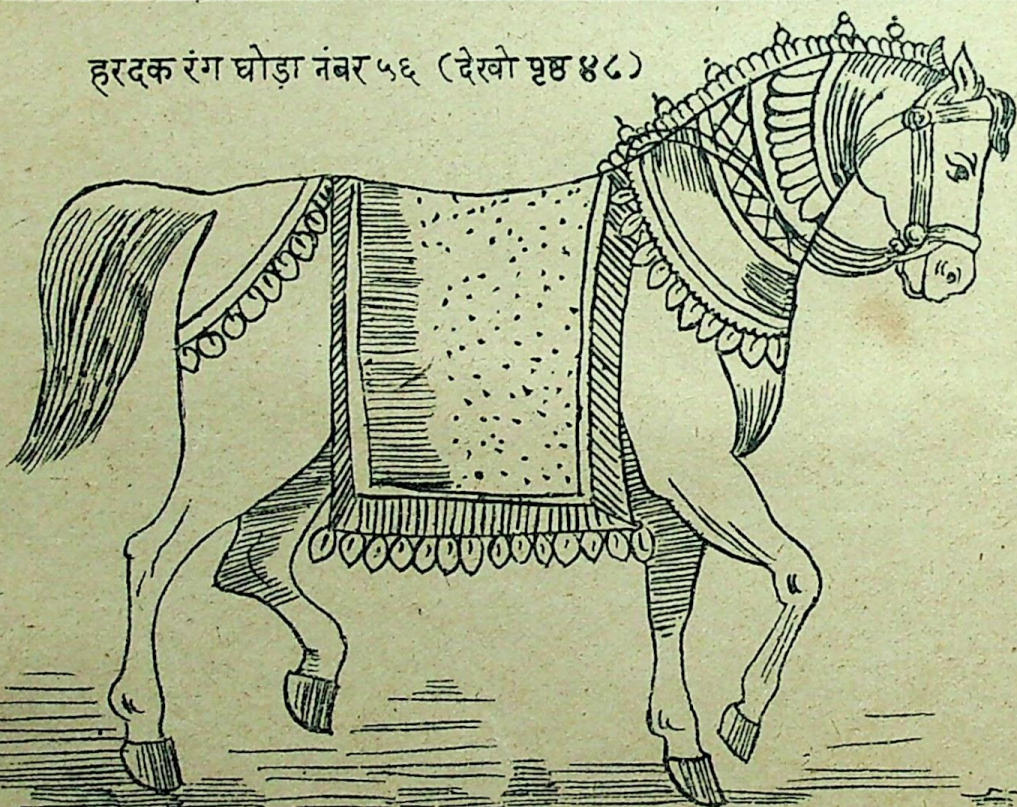 हरदक रंग घोड़ा नंबर ५६ (देखो पृष्ठ ४८)